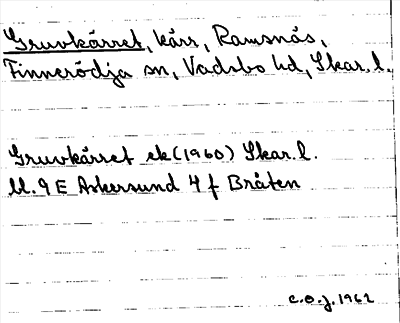 Gruvkärret, kärr, Ramsnäs,
Finnerödja sn, Vadsbo hd, Skar. l.
Gruvkärret ek (1960) Skar. l.
Bl. 9 E Askersund 4 f Bråten
C.O.J. 1962